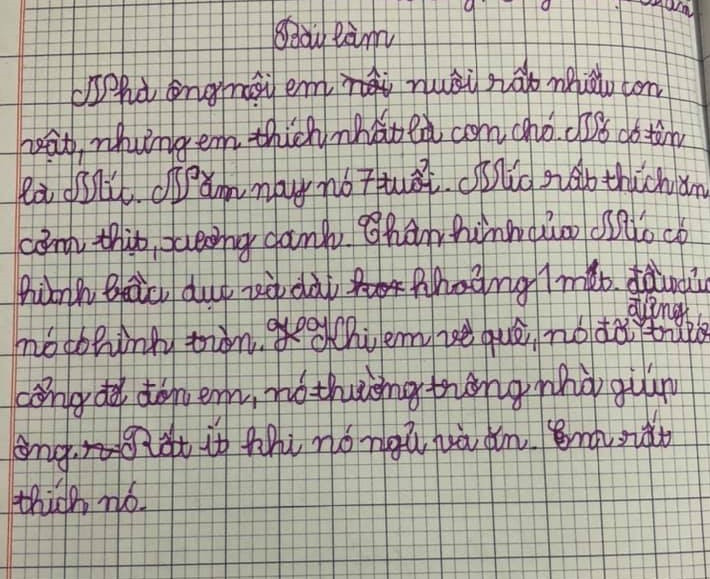 Bài làm
Nhà ông nội em nôi nuôi rất nhiều con
vật, nhưng em thích nhất là con chó. Nó có tên
là Mic. Năm nay nó 7 tuổi. Mic rất thích ăn
cơm thịt, xương canh. Thân hình của Mic có
hình bầu dục và dài khoảng 1 mét. đầu của
nó có hình tròn. Khi em về quê, nó đã đứng trước
cổng để đón em, nó thường trông nhà giúp
ông. Rất ít khi nó ngủ và ăn. Em rất
thích nó.